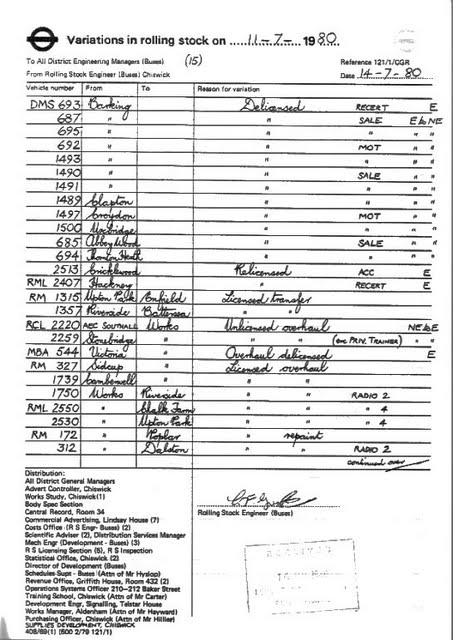 Variations in rolling stock on 11-7- 1980
To All District Engineering Managers (Buses) (15) Reference 121/1/CGR
From Rolling Stock Engineer (Buses) Chiswick Date 14-7-80
Vehicle number From To Reason for variation
DMS 693 Barking Delicensed RECERT E
687 " " SALE E to NE
695 " " " " "
692 " " MOT " "
1493 " " " " "
1490 " " SALE " "
1491 " " " " "
1489 Clapton " " " "
1497 Croydon " MOT " "
1500 Uxbridge " " " "
685 Abbey Wood " SALE " "
694 Thornton Heath " " " "
2513 Cricklewood Relicensed ACC E
RML 2407 Hackney " RECERT E
RM 1315 Upton Park Enfield Licensed transfer
1357 Riverside Battersea " "
RCL 2220 AEC SOUTHALL Works Unlicensed overhaul NE to E
2259 Stonebridge " " " (one PRIV. TRAINER) " "
MBA 544 Victoria " Overhaul delicensed E
RM 327 Sidcup " Licensed overhaul
1739 Camberwell " " "
1750 Works Riverside " " RADIO 2
RML 2550 " Chalk Farm " " " 4
2530 " Upton Park " " " 4
RM 172 " Poplar " repaint
312 " Dalston " " RADIO 2
continued over
Distribution:
All District General Managers
Advert Controller, Chiswick
Works Study, Chiswick(1)
Body Spec Section
Central Record, Room 34
Commercial Advertising, Lindsay House (7)
Costs Office (R S Engr- Buses) (2)
Scientific Adviser (2), Distribution Services Manager
Mech Engr (Development - Buses) (3)
R S Licensing Section (5), R S Inspection
Statistical Office, Chiswick (2)
Director of Development (Buses)
Schedules Supt - Buses (Attn of Mr Hyslop)
Revenue Office, Griffith House, Room 432 (2)
Operations Systems Officer 210-212 Baker Street
Training School, Chiswick (Attn of Mr Carter)
Development Engr, Signalling, Telstar House
Works Manager, Aldenham (Attn of Mr Hayward)
Purchasing Officer, Chiswick (Attn of Mr Hillier)
SUPPLIES DEVELOPMENT, CHISWICK
408/89(1) (500 2/79 121/1)
Rolling Stock Engineer (Buses)